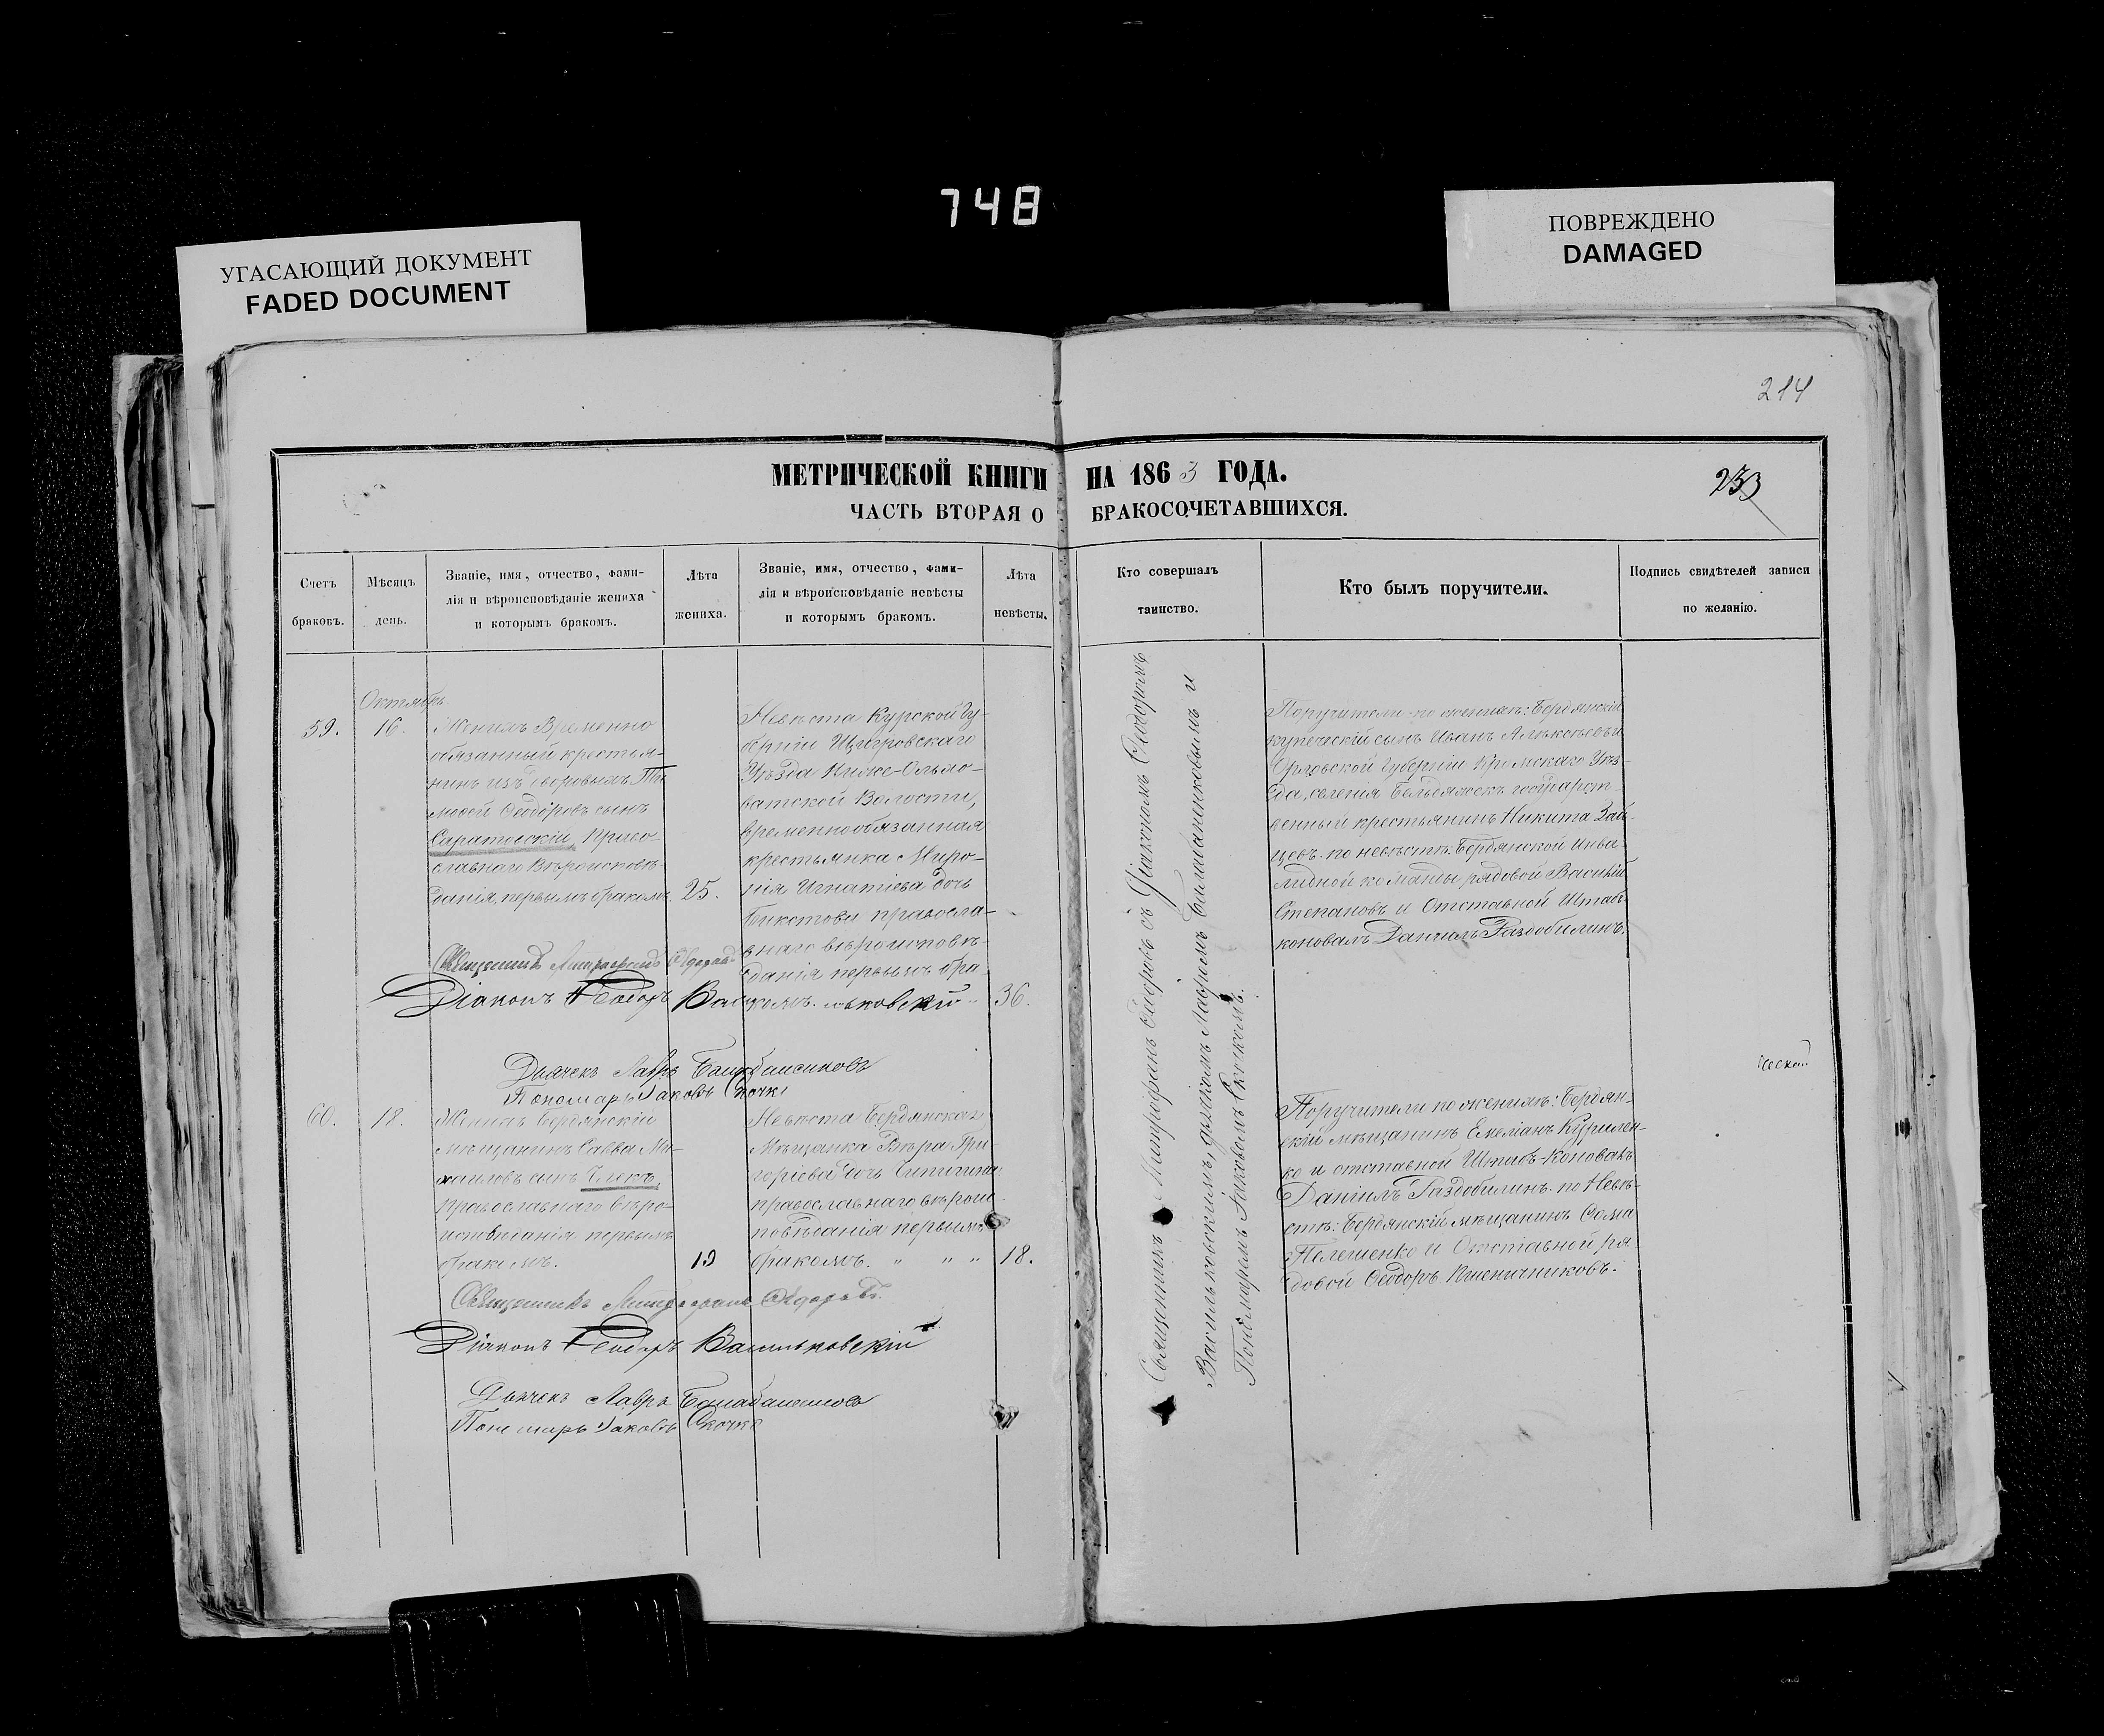 748
УГАСАЮЩИЙ ДОКУМЕНТ
FADED DOCUMENT
ПОВРЕЖДЕНО
DAMAGED
214
МЕТРИЧЕСКОЙ КНИГИ НА 1863 ГОДА.
233
ЧАСТЬ ВТОРАЯ О БРАКОСОЧЕТАВШИХСЯ.
Счетъ
браковъ.
Мѣсяцъ
день.
Званіе, имя, отчество, фами-
лія и вѣроисповѣданіе жениха
и которымъ бракомъ.
Лѣта
жениха.
Званіе, имя, отчество, фами-
лія и вѣроисковѣданіе невѣсты
и которымъ бракомъ.
Лѣта
невѣсты.
Кто совершалъ
таинство.
Кто былъ поручители.
Подпись свидѣтелей записи
по желанію.
59.
Октябрь.
16.
Женихъ Временно
обязанный крестья-
нинъ изъ дворовыхъ Ти
мофей Ѳеодоровъ сынъ
Саратовскій, Право-
славнаго Вѣроисповѣ-
данія, первымъ бракомъ.
25.
Невѣста Курской Гу-
берніи Щигровскаго
Уѣзда Ниже-Ольхо-
ватской Волости,
временнообязанная
крестьянка Миро-
нія Игнатіева дочь
правосла-
внаго вѣроисповѣ-
данія первымъ бра-
комъ.
36.
Священникъ Митрофанъ
Діаконъ Ѳеодоръ Васильковскій
Дьячекъ Лавръ
Пономарь Іаковъ
Священникъ Митрофанъ Ѳедоровъ съ Діакономъ Ѳеодоромъ
Васильковскимъ, дьячкомъ Лавромъ и
Пономаремъ Іаковомъ
Поручители по женихѣ: Бердянскій
купеческій сынъ Иванъ Алексѣевъ и
Орловской Губерніи Кромскаго Уѣз-
да, селенія государст-
венный крестьянинъ Никита Зай-
цевъ. по невѣстѣ: Бердянской Инва-
лидной команды рядовой Василій
Степановъ и Отставной Штабъ-
коновалъ Даніилъ Раздобилинъ.
60.
18.
Женихъ Бердянскій
мѣщанинъ Савва Ми-
хаиловъ сынъ
православнаго вѣро-
исповѣданія первымъ
бракомъ.
19
Невѣста Бердянская
Мѣщанка Вѣра Гри-
горіева дочь
православнаго вѣрои-
повѣданія первымъ
бракомъ. " " "
18.
Поручители по женихѣ: Бердян-
скій мѣщанинъ Емеліанъ Курилен-
ко и отставной Штабъ-Коновалъ
Даніилъ Раздобилинъ. по Невѣ-
стѣ: Бердянскій мѣщанинъ Ѳома
и Отставной ря-
довой Ѳеодоръ Пшеничниковъ.
Священникъ Митрофанъ Ѳедоровъ.
Діаконъ Ѳеодоръ Васильковскій
Дьячекъ Лавръ
Пономарь Іаковъ